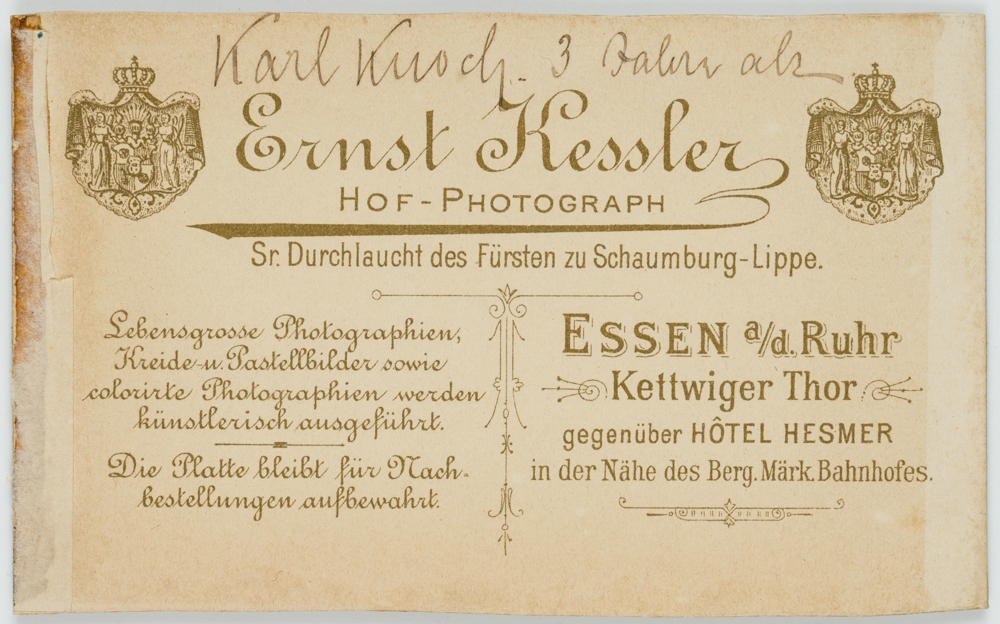 Karl Knoch. 3 Jahre alt
Ernst Kessler
HOF-PHOTOGRAPH
Sr. Durchlaucht des Fürsten zu Schaumburg-Lippe.
Lebensgrosse Photographien,
Kreide-u. Pastellbilder sowie
colorirte Photographien werden
künstlerisch ausgeführt.
Die Platte bleibt für Nach-
bestellungen aufbewahrt.
ESSEN a/d. Ruhr
Kettwiger Thor
gegenüber HÔTEL HESMER
in der Nähe des Berg. Märk. Bahnhofes.